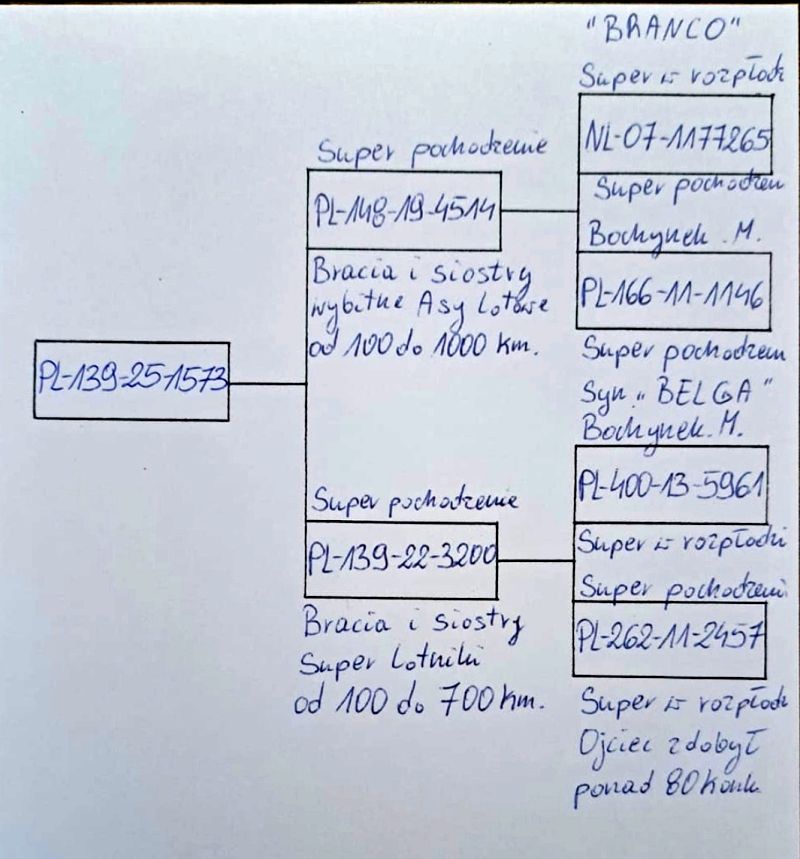 "BRANCO"
Super w rozpłodz
NL-07-1177265
Super pochodzen
Bochynek. M.
PL-166-11-1146
Super pochodzen
Syn „BELGA"
Bochynek. M.
Super pochodzenie
PL-148-19-4514
Bracia i siostry
wybitne Asy Lotowe
od 100 do 1000 km.
PL-139-25-1573
Super pochodzenie
PL-139-22-3200
Bracia i siostry
Super Lotniki
od 100 do 700 km.
PL-400-13-5961
Super w rozpłodzi
Super pochodzeni
PL-262-11-2457
Super w rozpłodz
Ojciec zdobył
ponad 80 konk